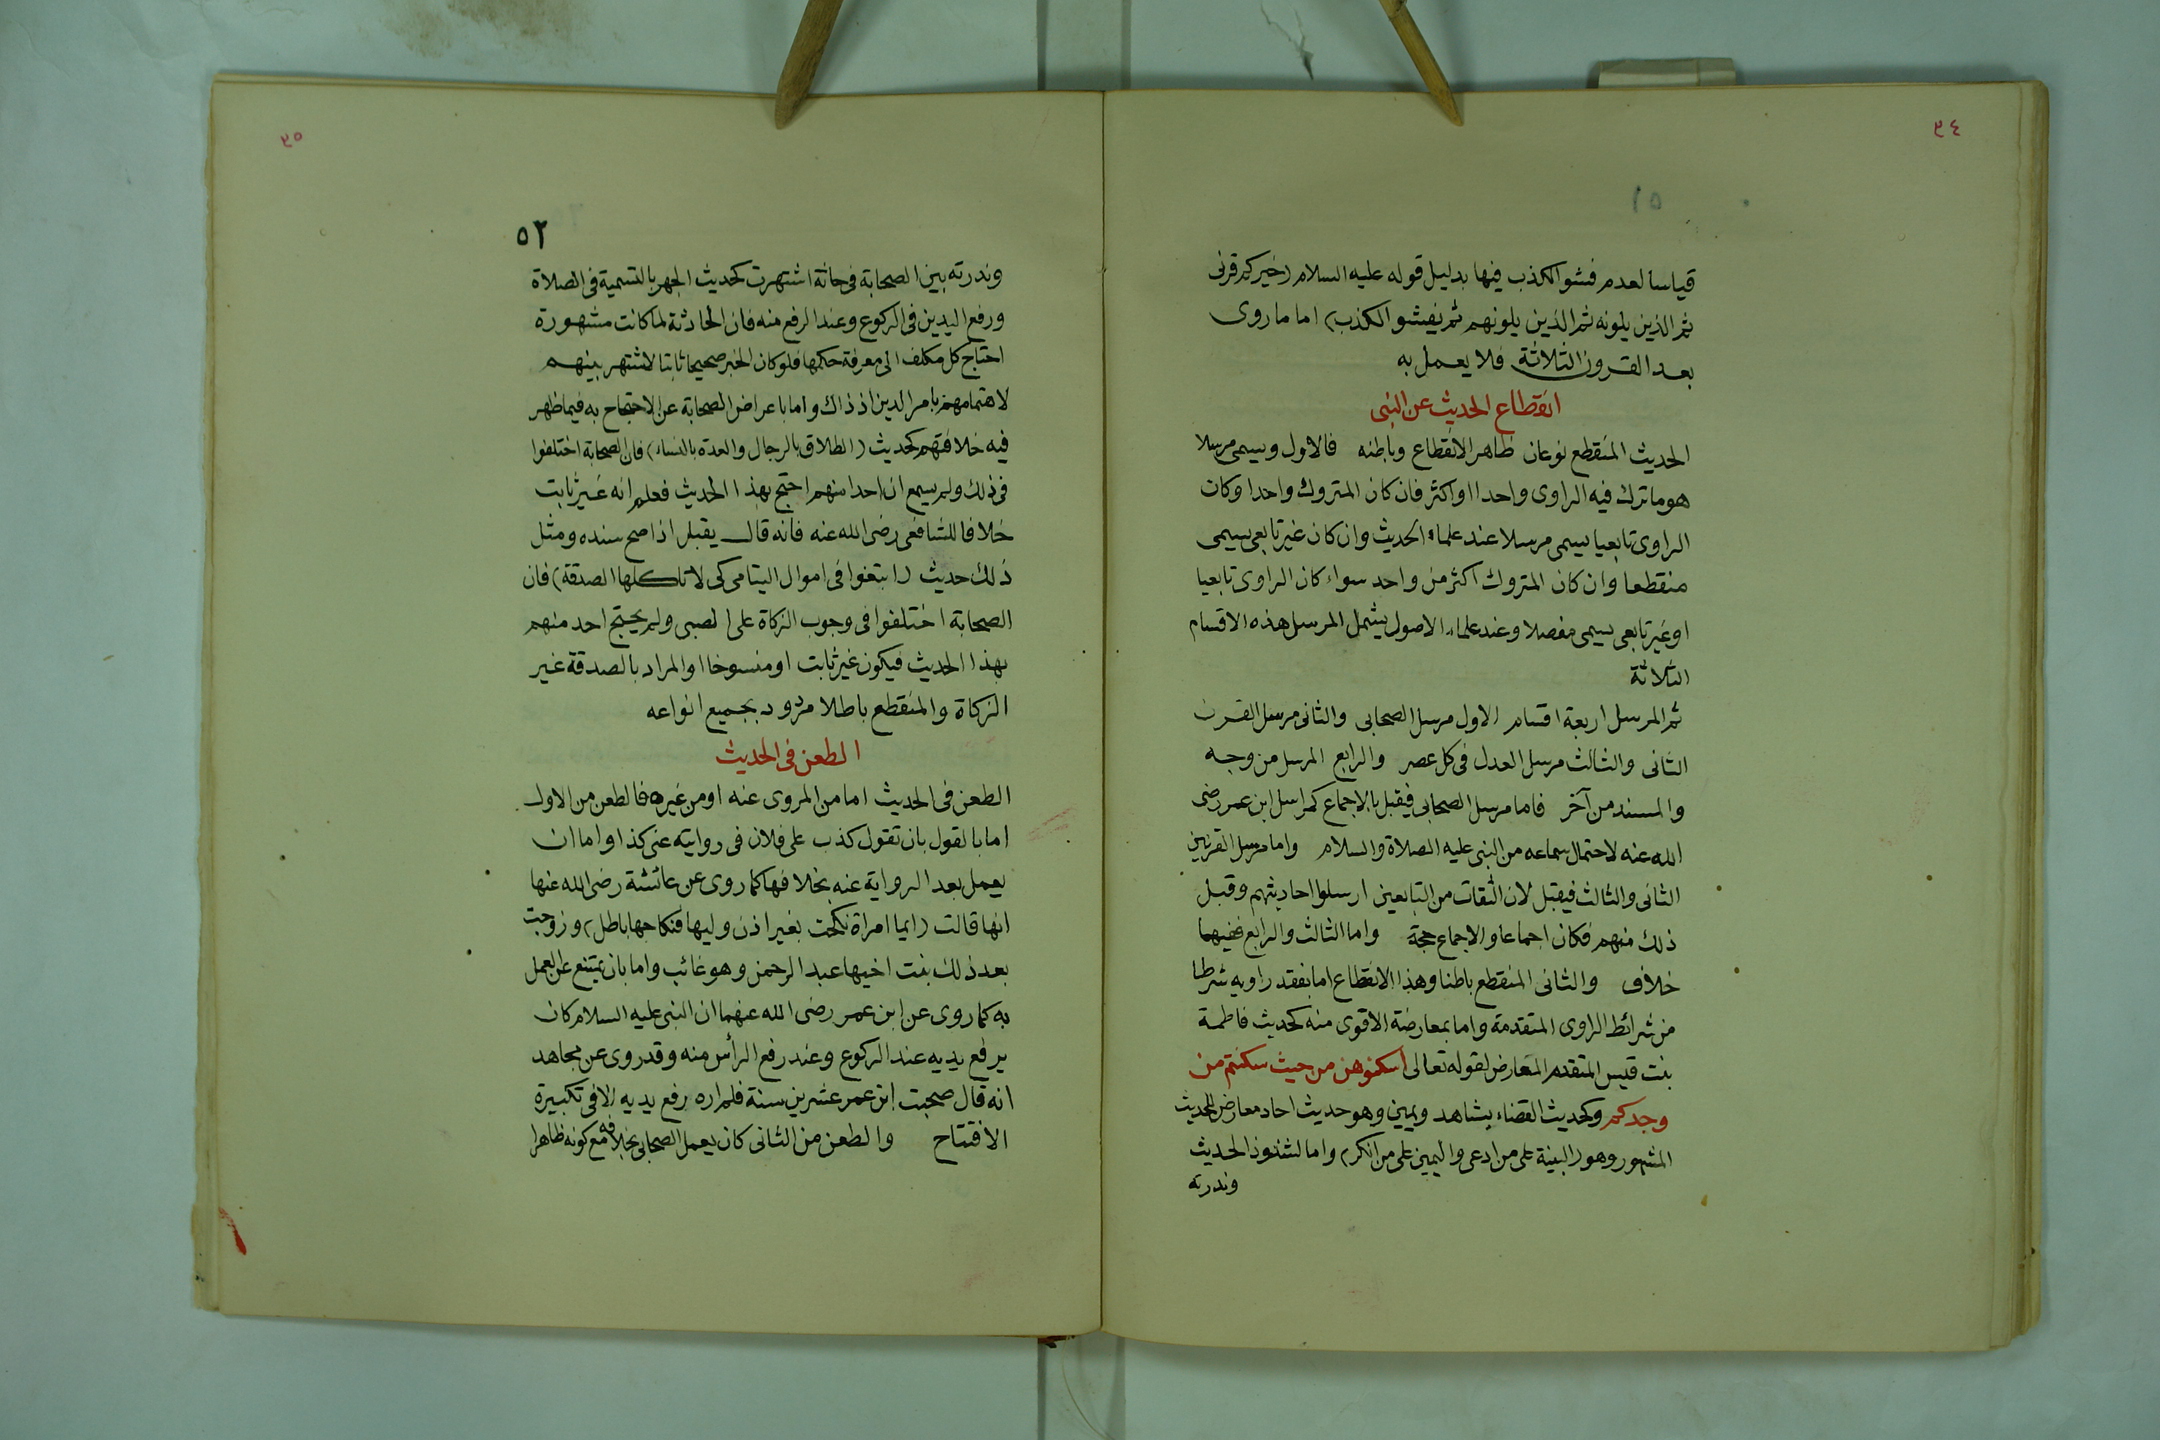 ٣٤
٥١
قياسا لعدم فشو الكذب فيها بدليل قوله عليه السلام (خيركم قرنى
ثم الذين يلونه ثم الذين يلونهم ثم يفشو الكذب) اما ما روى
بعد القرون الثلاثة فلا يعمل به
انقطاع الحديث عن النبى
الحديث المنقطع نوعان ظاهر الانقطاع وباطنه فالاول ويسمى مرسلا
هو ما ترك فيه الراوى واحدا او اكثر فان كان المتروك واحدا وكان
الراوى تابعيا يسمى مرسلا عند علماء الحديث وان كان غير تابعى يسمى
منقطعا وان كان المتروك اكثر من واحد سواء كان الراوى تابعيا
او غير تابعى يسمى مفصلا وعند علماء الاصول يشمل المرسل هذه الاقسام
الثلاثة
ثم المرسل اربعة اقسام الاول مرسل الصحابى والثانى مرسل القرن
الثانى والثالث مرسل العدل فى كل عصر والرابع المرسل من وجه
والمسند من آخر فاما مرسل الصحابى فيقبل بالاجماع كمراسل ابن عمر رضى
الله عنه لاحتمال سماعه من النبى عليه الصلاة والسلام واما مرسل القرنين
الثانى والثالث فيقبل لان الثقات من التابعين ارسلوا احاديثهم وقبل
ذلك منهم فكان اجماعا والاجماع حجة واما الثالث والرابع ففيهما
خلاف والثانى المنقطع باطنا وهذا الانقطاع اما بفقد راويه شرطا
من شرائط الراوى المتقدمة واما بمعارضة الاقوى منه كحديث فاطمة
بنت قيس المتقدم المعارض لقوله تعالى اسكنوهن من حيث سكنتم من
وجدكم وكحديث القضاء بشاهد ويمين وهو حديث احاد معارض للحديث
المشهور وهو (البينة على من ادعى واليمين على من انكر) واما لشذوذ الحديث
وندرته
٣٥
٥٢
وندرته بين الصحابة فى حادثة اشتهرت كحديث الجهر بالتسمية فى الصلاة
ورفع اليدين فى الركوع وعند الرفع منه فان الحادثة لما كانت مشهورة
احتاج كل مكلف الى معرفة حكمها فلو كان الخبر صحيحا ثابتا لاشتهر بينهم
لاهتمامهم بامر الدين اذ ذاك واما باعراض الصحابة عن الاحتجاج به فيما ظهر
فيه خلافهم كحديث (الطلاق بالرجال والعدة بالنساء) فان الصحابة اختلفوا
فى ذلك ولم يسمع ان احدا منهم احتج بهذا الحديث فعلم انه غير ثابت
خلافا للشافعى رضى الله عنه فانه قال يقبل اذا صح سنده ومثل
ذلك حديث (ابتغوا فى اموال اليتامى كى لا تاكلها الصدقة) فان
الصحابة اختلفوا فى وجوب الزكاة على الصبى ولم يحتج احد منهم
بهذا الحديث فيكون غير ثابت او منسوخا او المراد بالصدقة غير
الزكاة والمنقطع باطلا مردود بجميع انواعه
الطعن فى الحديث
الطعن فى الحديث اما من المروى عنه او من غيره فالطعن من الاول
اما بالقول بان تقول كذب على فلان فى روايته عنى كذا واما ان
يعمل بعد الرواية عنه بخلافها كما روى عن عائشة رضى الله عنها
انها قالت (ايما امراة نكحت بغير اذن وليها فنكاحها باطل) وزوجت
بعد ذلك بنت اخيها عبد الرحمن وهو غائب واما بان يمتنع عن العمل
به كما روى عن ابن عمر رضى الله عنهما ان النبى عليه السلام كان
يرفع يديه عند الركوع وعند رفع الرأس منه وقد روى عن مجاهد
انه قال صحبت ابن عمر عشرين سنة فلم اره يرفع يديه الا فى تكبيرة
الافتتاح والطعن من الثانى كان يعمل الصحابى بخلافه مع كونه ظاهرا